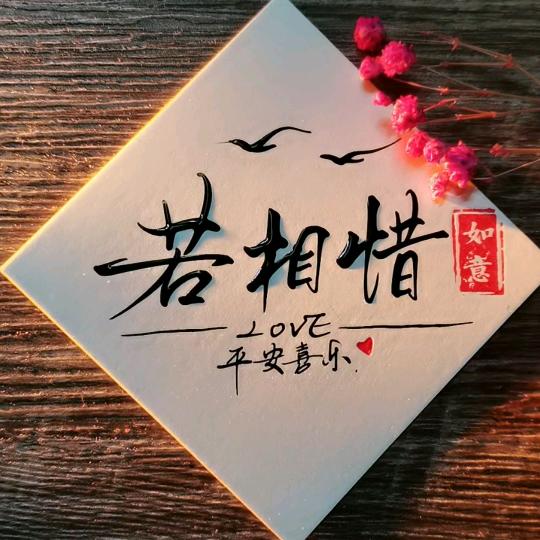 若相惜
如意
LOVE
平安喜乐